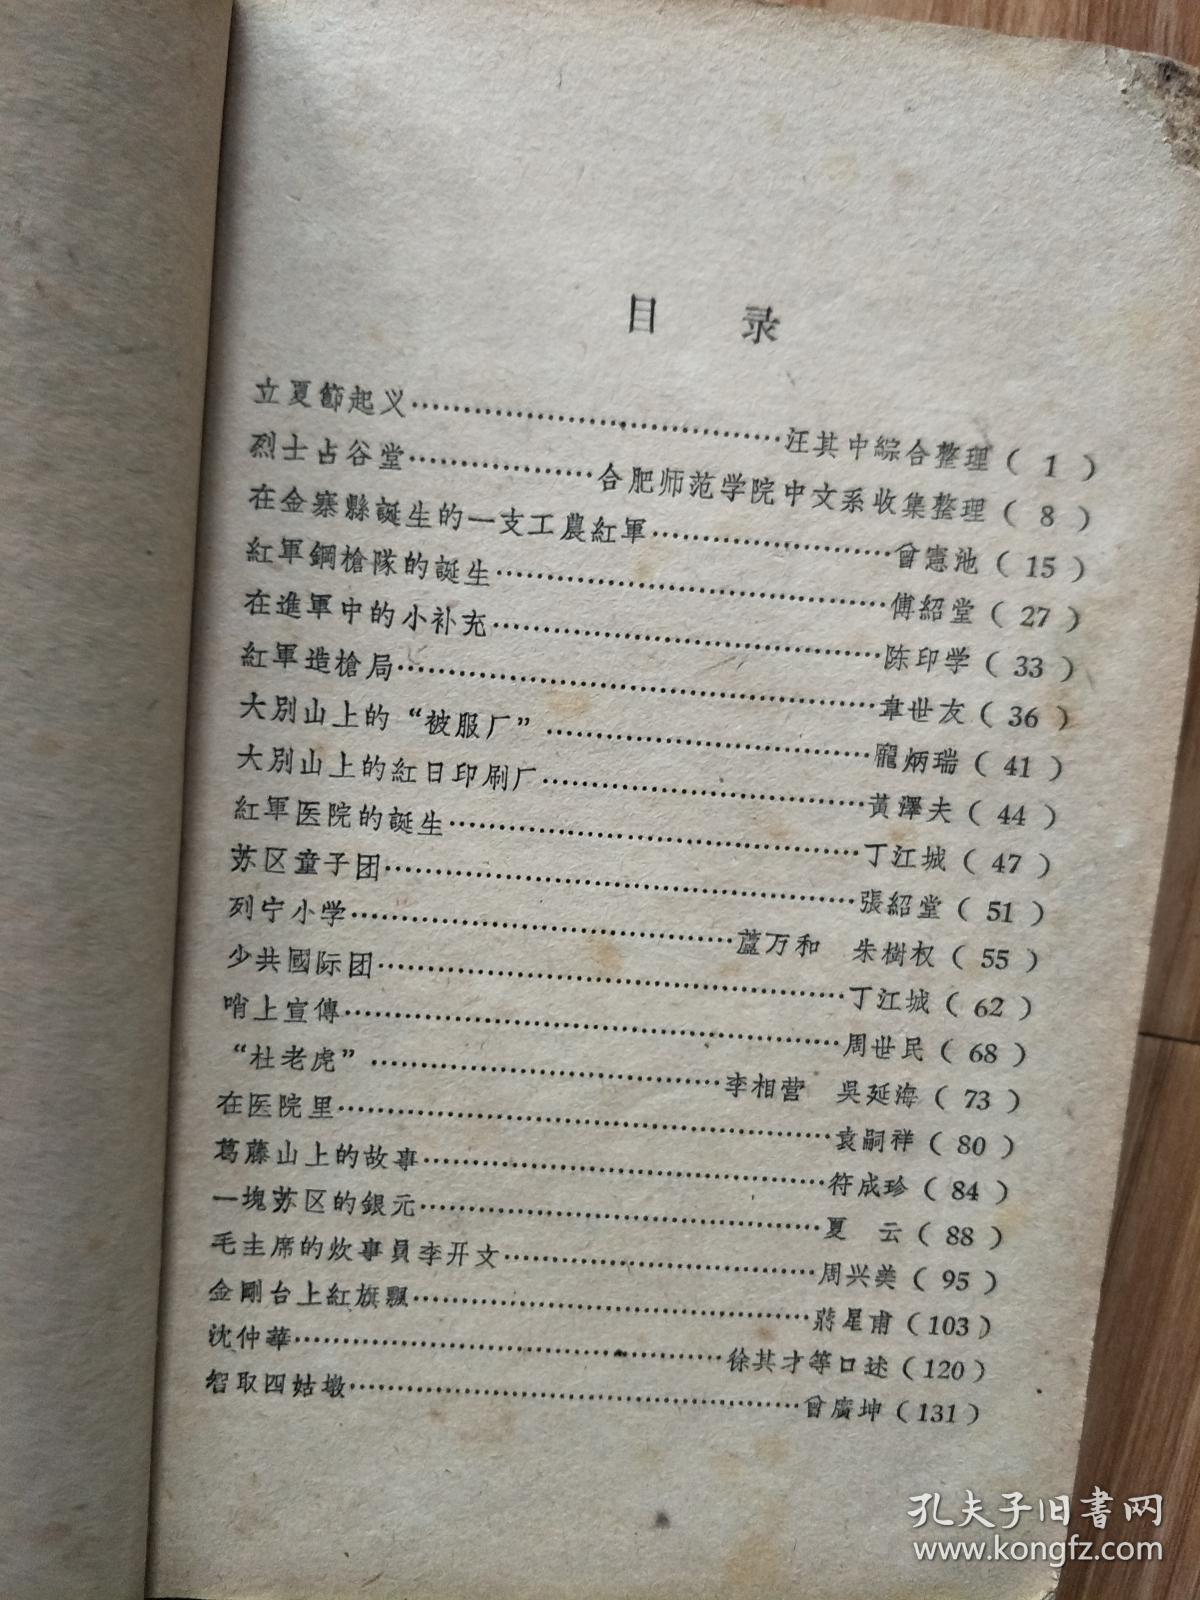 目 录
立夏節起义……汪其中綜合整理（1）
烈士占谷堂……合肥师范学院中文系收集整理（8）
在金寨縣誕生的一支工農紅軍……曾憲池（15）
紅軍鋼槍隊的誕生……傅紹堂（27）
在進軍中的小补充……陈印学（33）
紅軍造槍局……韋世友（36）
大別山上的“被服厂”……龐炳瑞（41）
大別山上的紅日印刷厂……黃澤夫（44）
紅軍医院的誕生……丁江城（47）
苏区童子团……張紹堂（51）
列宁小学……蘆万和 朱樹权（55）
少共國际团……丁江城（62）
哨上宣傳……周世民（68）
“杜老虎”……李相营 吳延海（73）
在医院里……袁嗣祥（80）
葛藤山上的故事……符成珍（84）
一塊苏区的銀元……夏 云（88）
毛主席的炊事員李开文……周兴美（95）
金剛台上紅旗飄……蔣星甫（103）
沈仲華……徐其才等口述（120）
智取四姑墩……曾廣坤（131）
孔夫子旧书网
www.kongfz.com